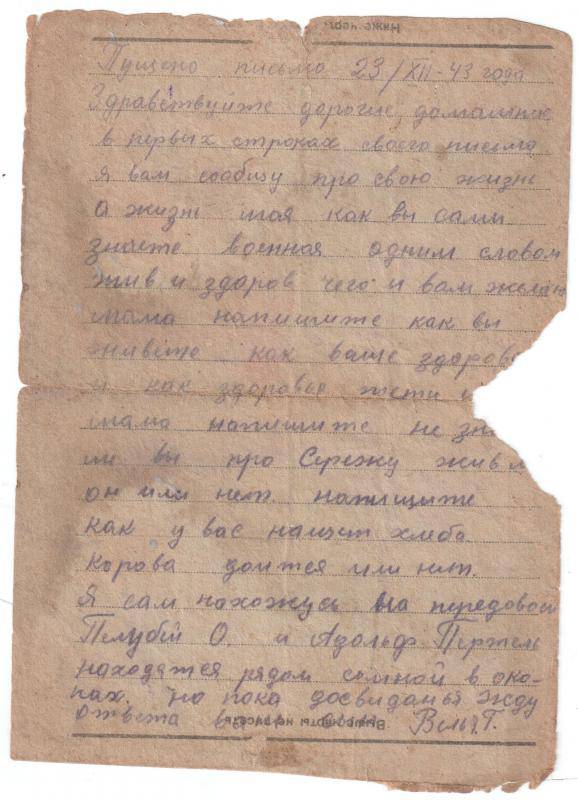 Ниже черт
Пущено письмо 23/XII-43 года
Здравствуйте дорогие домашние
в первых строках своего письма
я вам сообщу про свою жизнь
а жизнь моя как вы сами
знаете военная одним словом
жив и здоров чего и вам желаю
мама напишите как вы
живете как ваше здоров
и как здоровье тети
мама напишите не зн
ли вы про Сережку жив л
он или нет. напишите
как у вас насчет хлеба
корова доится или нет.
Я сам нахожусь на передовой
О. и Адольф
находятся рядом сомной в око-
пах. но пока досвиданья жду
ответа